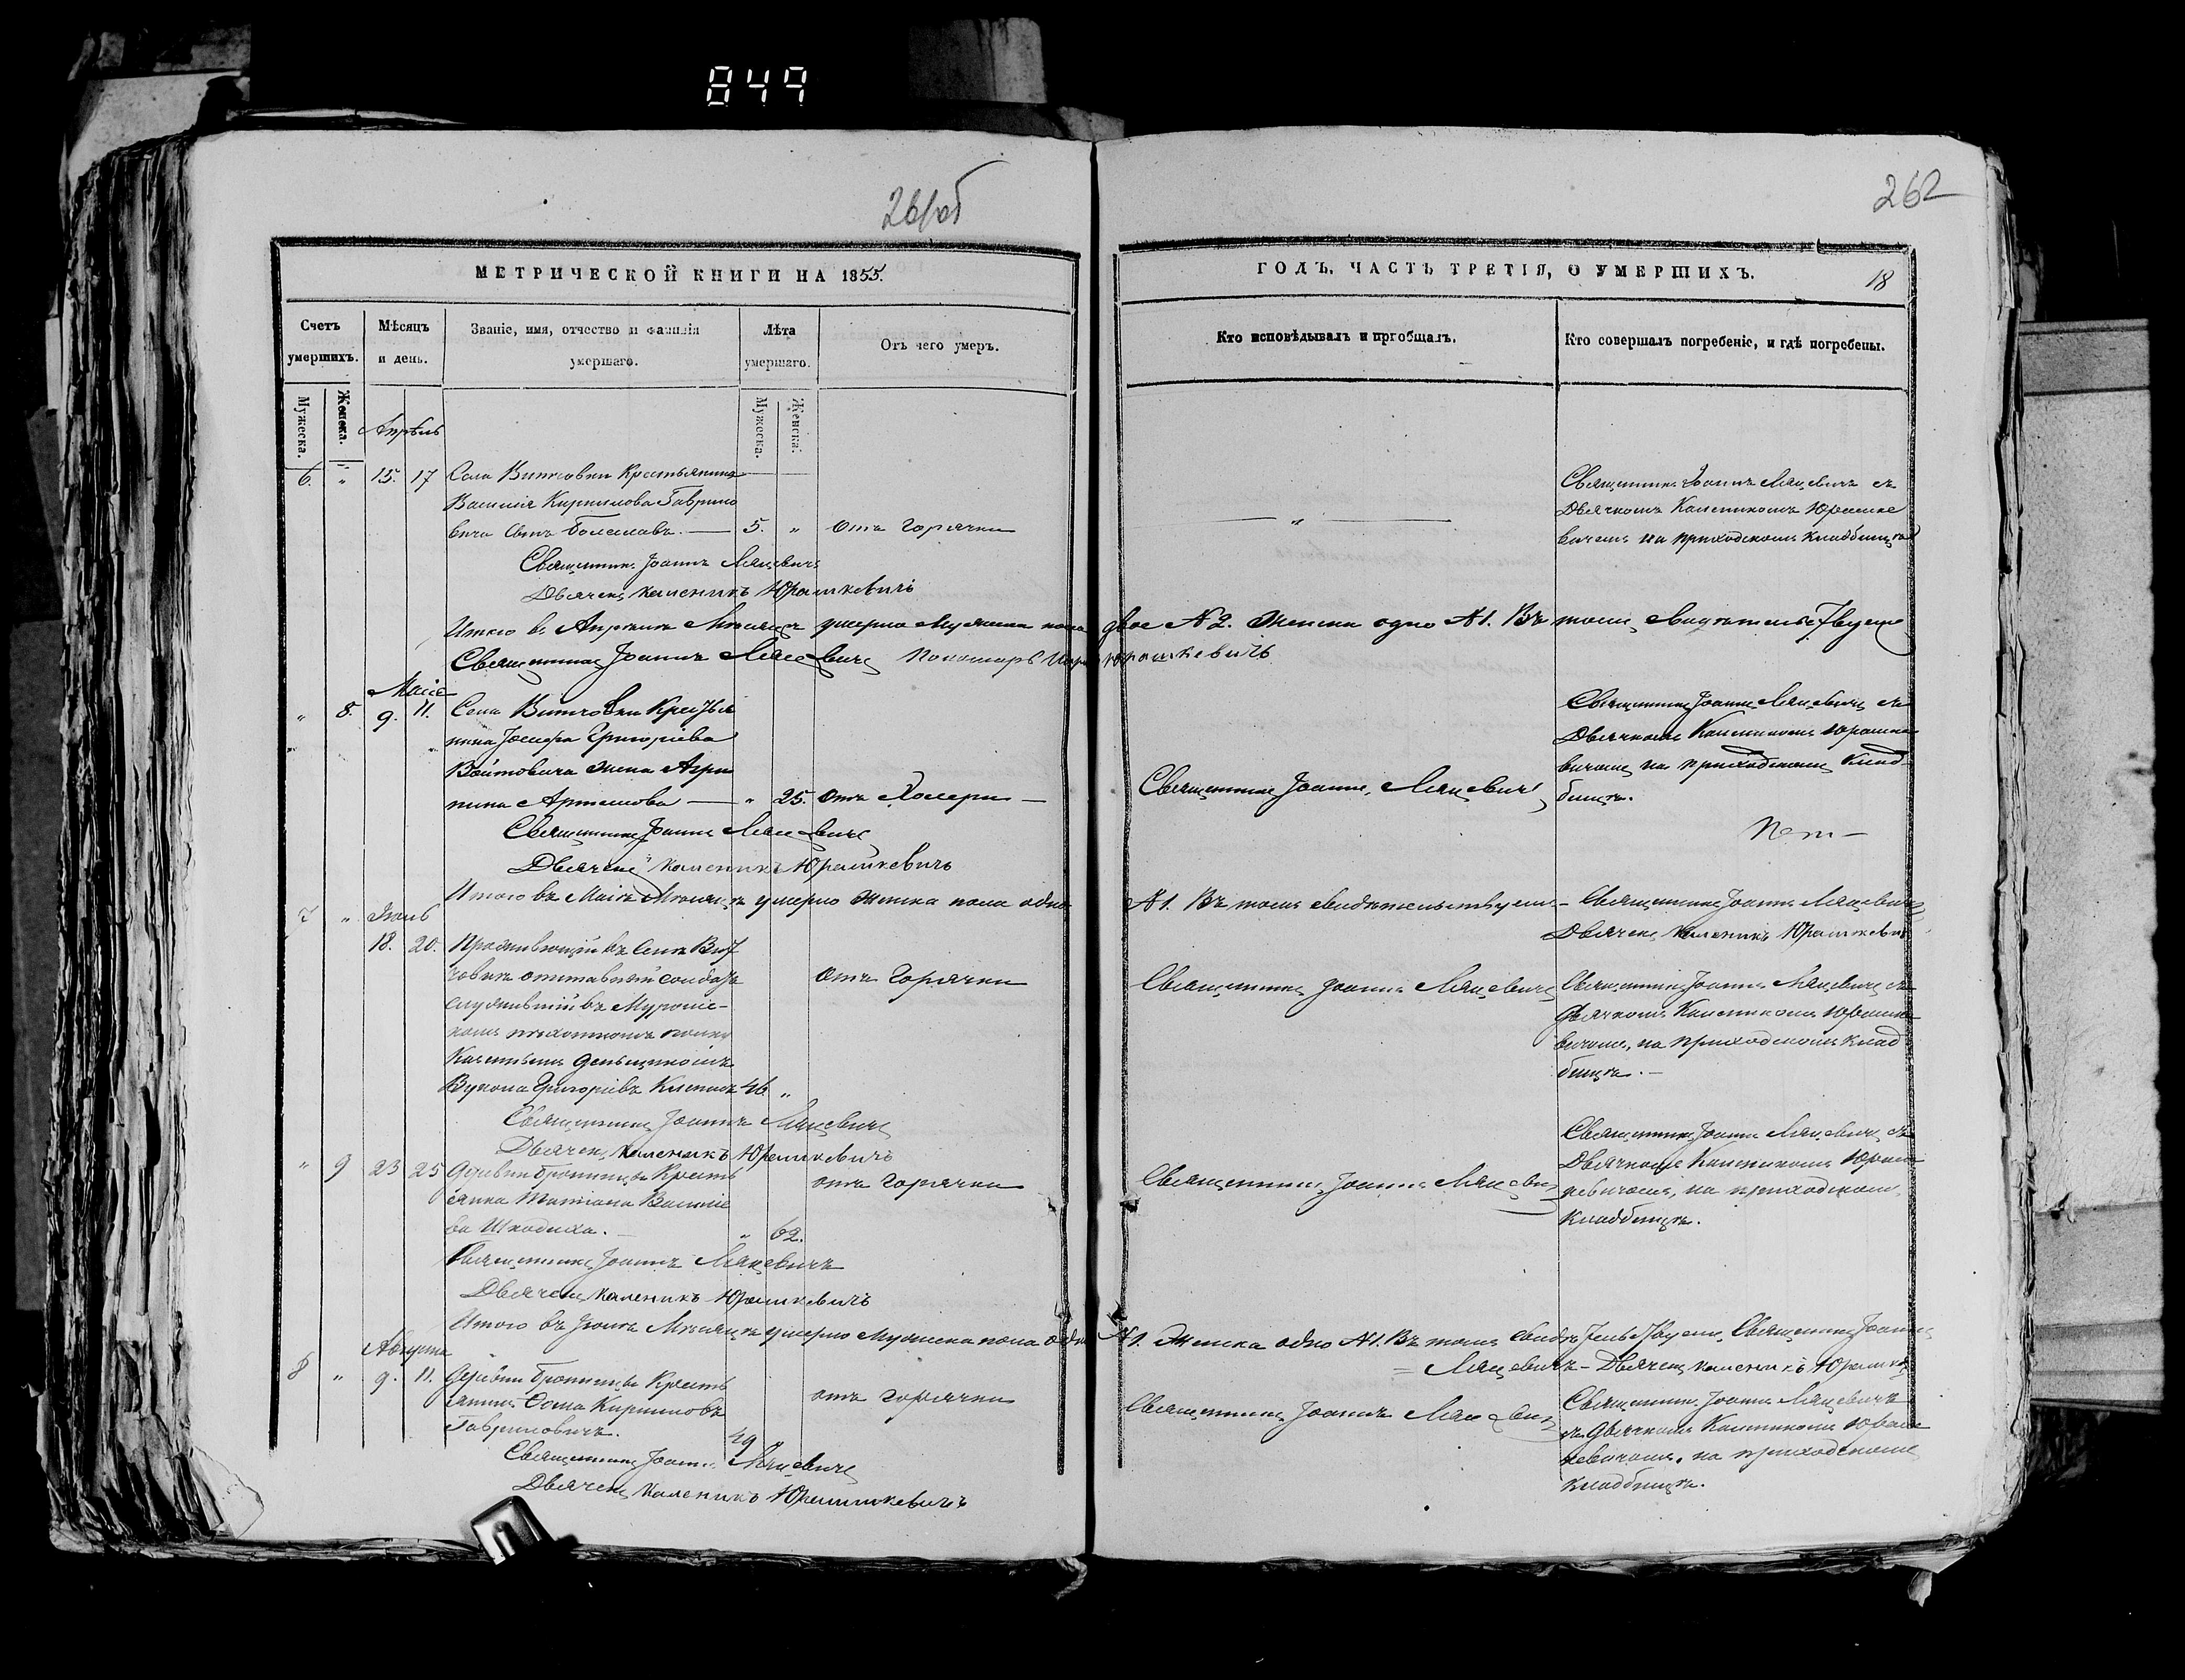 849
261об
262
МЕТРИЧЕСКОЙ КНИГИ НА 1855.
ГОДЪ, ЧАСТЬ ТРЕТІЯ, О УМЕРШИХЪ.
18
Счетъ умершихъ.
Мѣсяцъ и день.
Званіе, имя, отчество и фамилія умершаго.
Лѣта умершаго.
Отъ чего умеръ.
Кто исповѣдывалъ и пріобщалъ.
Кто совершалъ погребеніе, и гдѣ погребены.
Мужеска.
Женска.
Мужеска.
Женска.
Апрѣль
6. " 15. 17 Села Витговки Крестьянина
Василія Кирилова Гаврило
вича сынъ Болеславъ. — 5. " Отъ горячки
— " —
Священникъ Іоаннъ Ляцевичъ съ
Дьячкомъ Каленикомъ Юрашке
вичемъ на приходскомъ кладбищѣ
Священникъ Іоаннъ Ляцевичъ
Дьячекъ Каленикъ Юрашкевичъ
Итого въ Апрѣлѣ Мѣсяцѣ умерло Мужеска пола двое № 2. Женска одно № 1. Въ томъ свидѣтельствуемъ
Священникъ Іоаннъ Ляцевичъ Пономарь Юрашкевичъ
Маіе
" 8. 9. 11. Села Витговки Крестья
нина Іосифа Григоріева
Войтовича жена Агри
пина Артемова — " 25. Отъ Холеры —
Священникъ Іоаннъ Ляцевичъ
Священникъ Іоаннъ Ляцевичъ съ
Дьячкомъ Каленикомъ Юрашке
вичемъ на приходскомъ Клад
бищѣ.
Священникъ Іоаннъ Ляцевичъ
Дьячекъ Каленикъ Юрашкевичъ
Итого въ Маіѣ Мѣсяцѣ умерло Женска пола одно № 1. Въ томъ свидѣтельствуемъ — Священникъ Іоаннъ Ляцевичъ
Дьячекъ Каленикъ Юрашкевичъ
7 " Іюль
18. 20. Проживающій въ Селѣ Вит
говкѣ отставный солдатъ
служившій въ Муромс-
комъ пѣхотномъ полку
Деньщикомъ
Вукола Григоріевъ 46 "
Отъ Горячки
Священникъ Іоаннъ Ляцевичъ
Священникъ Іоаннъ Ляцевичъ съ
Дьячкомъ Каленикомъ Юрашке
вичемъ, на приходскомъ клад
бищѣ. —
Священникъ Іоаннъ Ляцевичъ
Дьячекъ Каленикъ Юрашкевичъ
" 9 23 25 Деревни Бронницы Кресть
янка Татіана Василіе
ва Шкодиха. — " 62.
отъ Горячки
Священникъ Іоаннъ Ляцевичъ
Священникъ Іоаннъ Ляцевичъ съ
Дьячкомъ Каленикомъ Юраш
кевичемъ, на приходскомъ
Кладбищѣ.
Священникъ Іоаннъ Ляцевичъ
Дьячекъ Каленикъ Юрашкевичъ
Итого въ Іюлѣ Мѣсяцѣ умерло Мужеска пола одно № 1. Женска одно № 1. Въ томъ свидѣтельствуемъ, Священникъ Іоаннъ
= Ляцевичъ — Дьячекъ Каленикъ Юрашкев
Августа
8 " 9. 11. Деревни Бронницы Кресть
янинъ Ѳома Кириловъ
Гавриловичъ. 49 "
отъ горячки
Священникъ Іоаннъ Ляцевичъ
Священникъ Іоаннъ Ляцевичъ
съ Дьячкомъ Каленикомъ Юраш
кевичемъ, на приходскомъ
кладбищѣ.
Священникъ Іоаннъ Ляцевичъ
Дьячекъ Каленикъ Юрашкевичъ